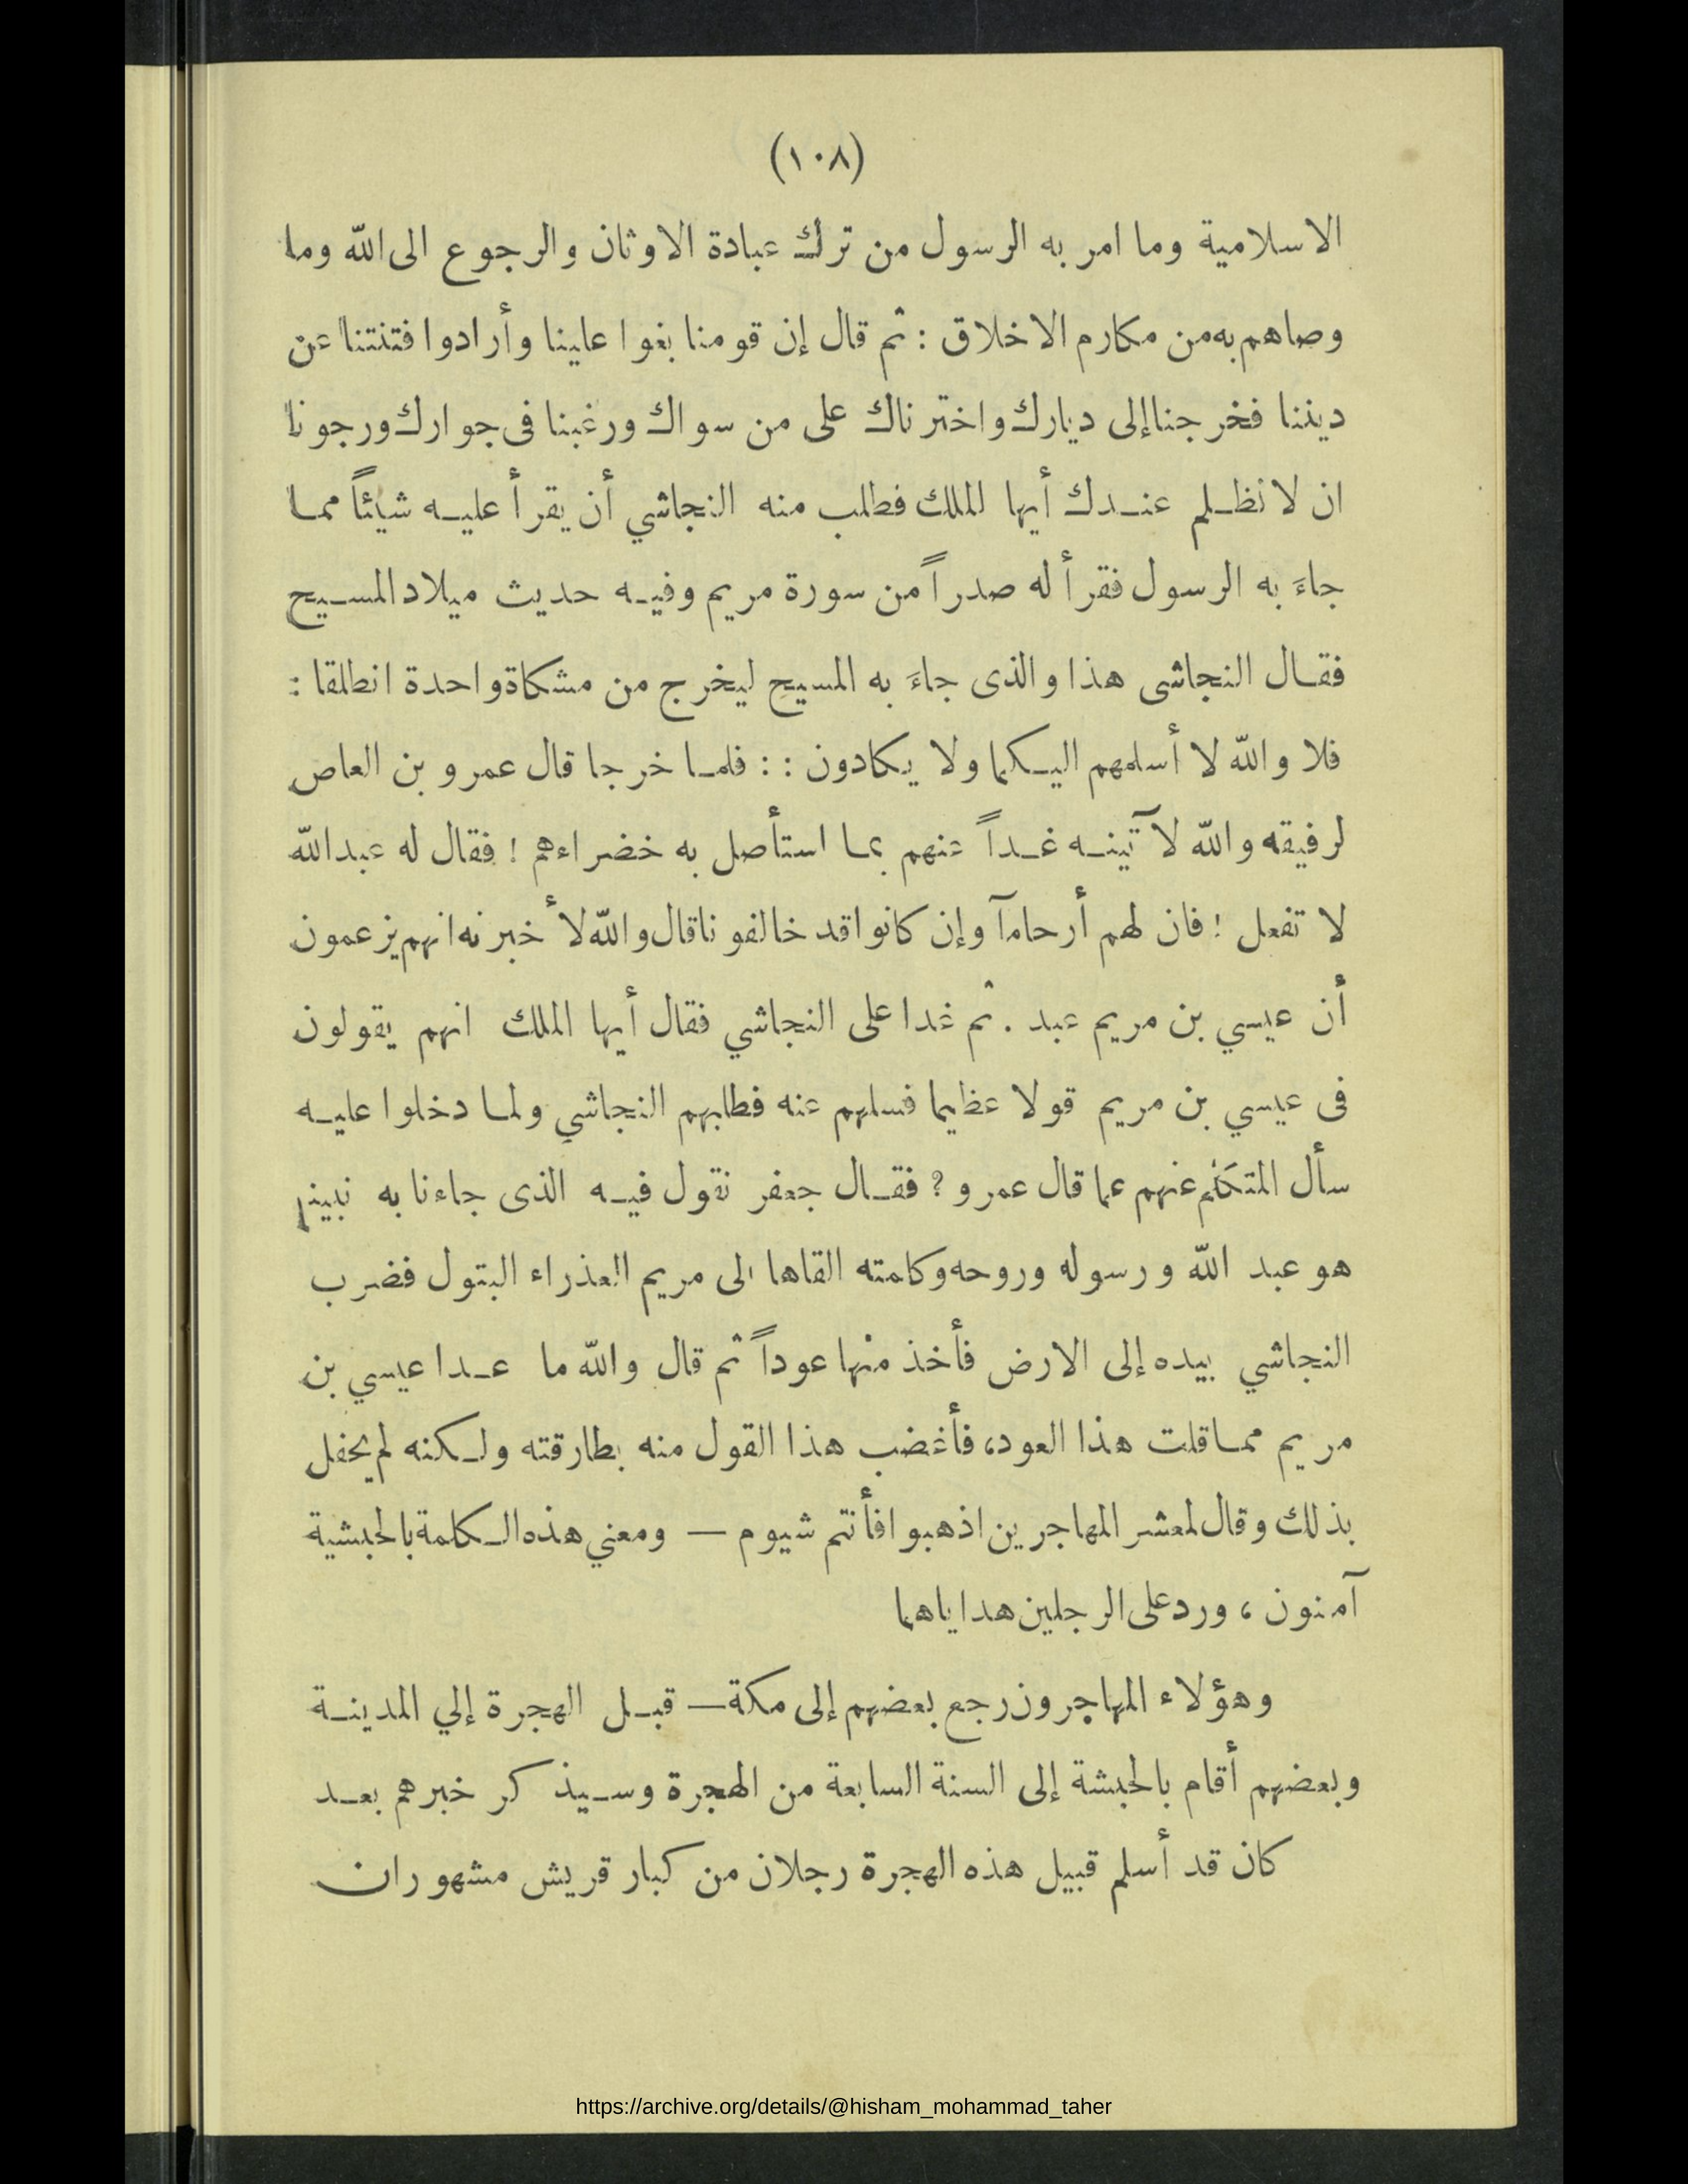 (١٠٨)
الاسلامية وما امر به الرسول من ترك عبادة الاوثان والرجوع الى الله وما
وصاهم به من مكارم الاخلاق : ثم قال إن قومنا بغوا علينا وأرادوا فتنتنا عن
ديننا فخرجنا إلى ديارك واخترناك على من سواك ورغبنا فى جوارك ورجونا
ان لا نظلم عندك أيها الملك فطلب منه النجاشي أن يقرأ عليه شيئاً مما
جاءَ به الرسول فقرأ له صدراً من سورة مريم وفيه حديث ميلاد المسيح
فقال النجاشى هذا والذى جاءَ به المسيح ليخرج من مشكاة واحدة انطلقا :
فلا والله لا أسلمهم اليكما ولا يكادون : : فلما خرجا قال عمرو بن العاص
لرفيقه والله لآتينه غداً عنهم بما استأصل به خضراءهم ! فقال له عبدالله
لا تفعل ! فان لهم أرحاماً وإن كانوا قد خالفونا قال والله لأخبرنه انهم يزعمون
أن عيسي بن مريم عبد . ثم غدا على النجاشي فقال أيها الملك انهم يقولون
فى عيسي بن مريم قولا عظيما فسلهم عنه فطلبهم النجاشي ولما دخلوا عليه
سأل المتكلم عنهم عما قال عمرو ؟ فقال جعفر نقول فيه الذى جاءنا به نبينا
هو عبد الله ورسوله وروحه وكلمته القاها الى مريم العذراء البتول فضرب
النجاشي بيده إلى الارض فأخذ منها عوداً ثم قال والله ما عدا عيسي بن
مريم مما قلت هذا العود، فأغضب هذا القول منه بطارقته ولكنه لم يحفل
بذلك وقال لمعشر المهاجرين اذهبوا فأنتم شيوم — ومعني هذه الكلمة بالحبشية
آمنون ، ورد على الرجلين هداياهما
وهؤلاء المهاجرون رجع بعضهم إلى مكة — قبل الهجرة إلي المدينة
وبعضهم أقام بالحبشة إلى السنة السابعة من الهجرة وسيذكر خبرهم بعد
كان قد أسلم قبيل هذه الهجرة رجلان من كبار قريش مشهوران
https://archive.org/details/@hisham_mohammad_taher